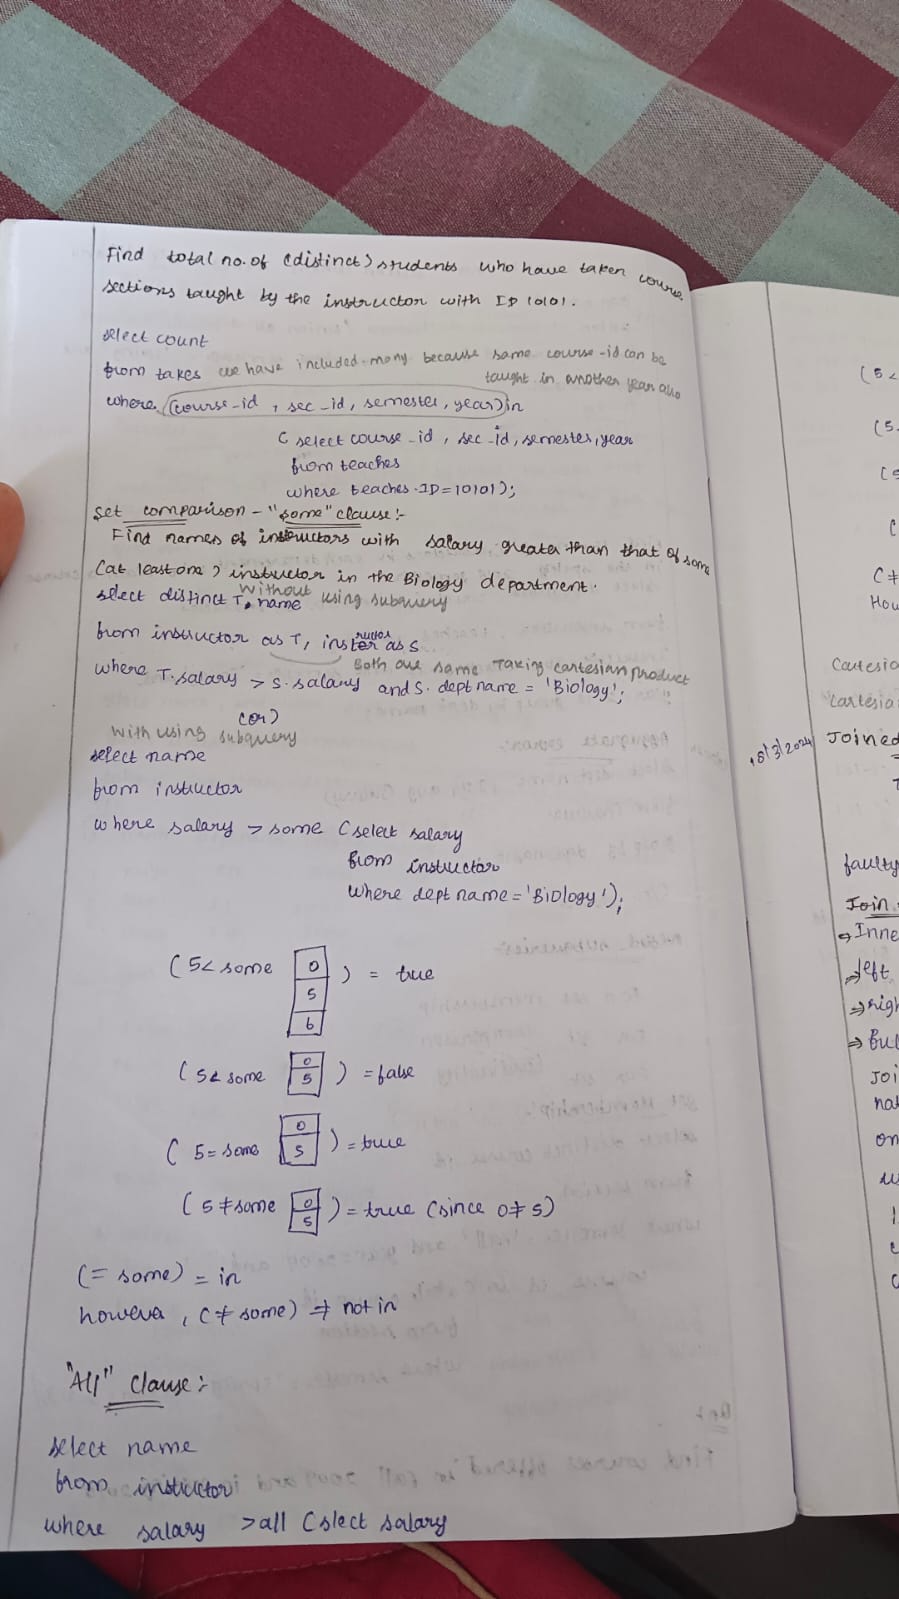 Find total no. of (distinct) students who have taken course
sections taught by the instructor with ID 10101.
select count
from takes we have included many because same course-id can be
taught in another year also
where (course_id, sec_id, semester, year) in
( select course_id, sec_id, semester, year
from teaches
where teaches.ID=10101);
set comparison - "some" clause:-
Find names of instructors with salary greater than that of some
(at least one) instructor in the Biology department.
without using subquery
select distinct T.name
from instructor as T, instructor as S
Both are same Taking cartesian product
where T.salary > S.salary and S.dept name = 'Biology';
(or)
with using subquery
select name
from instructor
where salary > some (select salary
from instructor
where dept name = 'Biology');
(5< some 0 ) = true
5
6
(5< some 0 ) = false
5
( 5= some 0 ) = true
5
(5 ≠ some 0 ) = true (since 0 ≠ 5)
5
(= some) = in
howeva, (≠ some) ≠> not in
"All" Clause:-
select name
from instructor
where salary >all (slect salary
(5<
(5
(
(≠
Hou
Cartesia
"cartesia
18/3/2024 Joined
faulty
Join
→ Inne
⇒ left
⇒ righ
⇒ Ful
Joi
nat
on